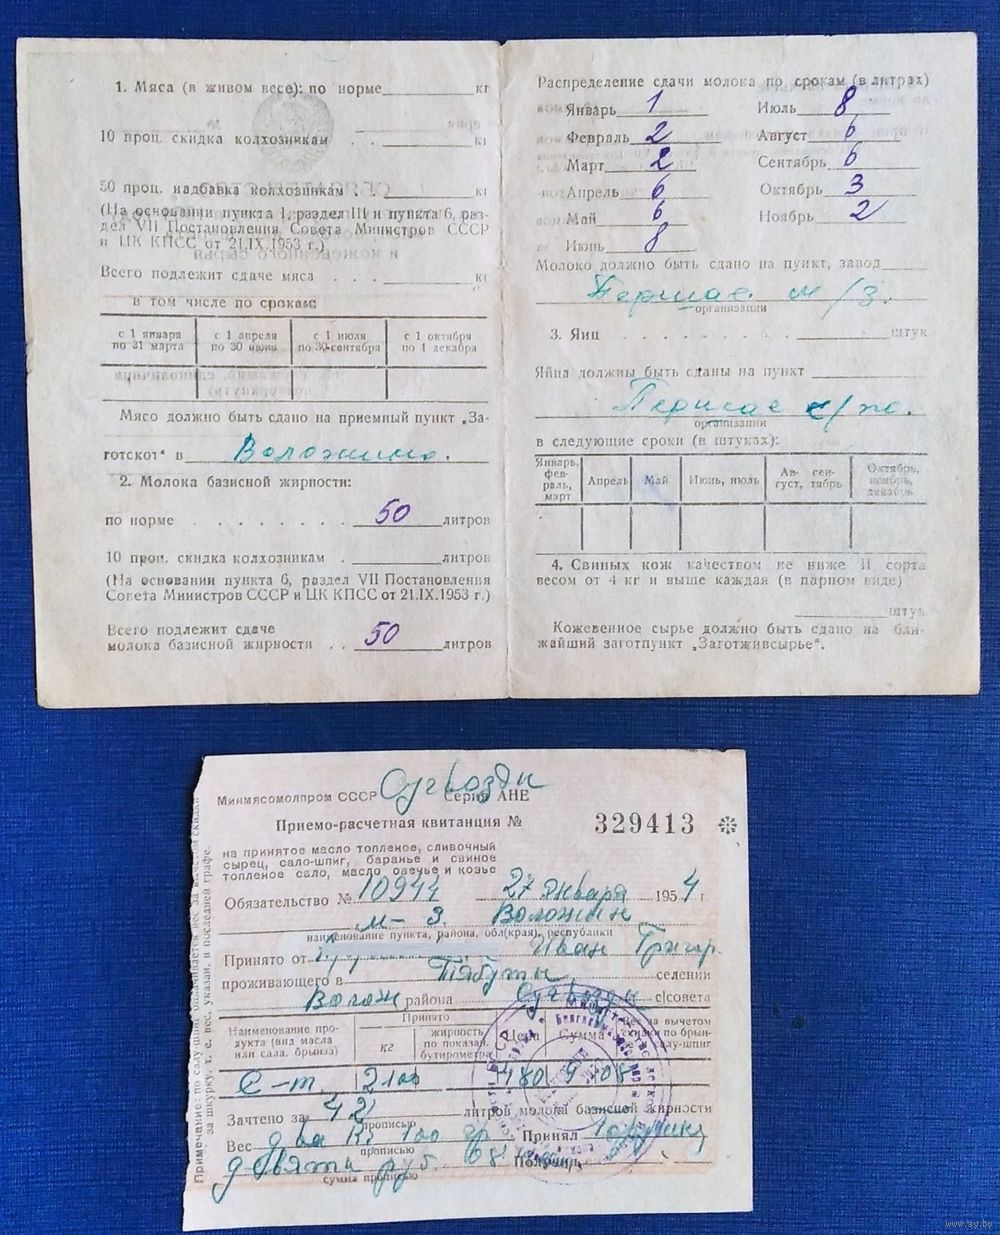 1. Мяса (в живом весе): по норме кг
10 проц. скидка колхозникам кг
50 проц. надбавка колхозникам кг
(На основании пункта 1, раздел III и пункта 6, раз-
дел VII Постановления Совета Министров СССР
и ЦК КПСС от 21.IX.1953 г.)
Всего подлежит сдаче мяса кг
в том числе по срокам:
с 1 января по 31 марта
с 1 апреля по 30 июня
с 1 июля по 30 сентября
с 1 октября по 1 декабря
Мясо должно быть сдано на приемный пункт „За-
готскот“ в Воложино.
2. Молока базисной жирности:
по норме 50 литров
10 проц. скидка колхозникам литров
(На основании пункта 6, раздел VII Постановления
Совета Министров СССР и ЦК КПСС от 21.IX.1953 г.)
Всего подлежит сдаче
молока базисной жирности 50 литров
Распределение сдачи молока по срокам (в литрах)
Январь 1 Июль 8
Февраль 2 Август 6
Март 2 Сентябрь 6
Апрель 6 Октябрь 3
Май 6 Ноябрь 2
Июнь 8
Молоко должно быть сдано на пункт, завод
м/з.
организации
3. Яиц штук
Яйца должны быть сданы на пункт
организации
в следующие сроки (в штуках):
Январь, фев- раль, март
Апрель
Май
Июнь, июль
Ав- густ, сен- тябрь
Октябрь, ноябрь, декабрь
4. Свиных кож качеством не ниже II сорта
весом от 4 кг и выше каждая (в парном виде)
штук
Кожевенное сырье должно быть сдано на бли-
жайший заготпункт „Заготживсырье“.
Сугвозды
Минмясомолпром СССР Серия АНЕ
Приемо-расчетная квитанция № 329413
на принятое масло топленое, сливочный
сырец, сало-шпиг, баранье и свиное
топленое сало, масло овечье и козье
Обязательство № 10944 27 января 1954 г
м-з. Воложин
наименование пункта, района, обл(края), республики
Принято от Иван Григор.
проживающего в Тябуты селении
Волож района Сугвозды с|совета
Наименование про-
дукта (вид масла
или сала, брынза)
Принято
кг
жирность
по показан.
бутирометра
Цена
Сумма
С-т. 2100 480 9-08
Зачтено за 42 литров молока базисной жирности
прописью
Вес два кг 100 гр Принял
прописью
девять руб. 08 Получил
сумма прописью
Примечание: по салу-шпиг
за шкурку, т. е. вес, указан. в последней графе.
www.ay.by